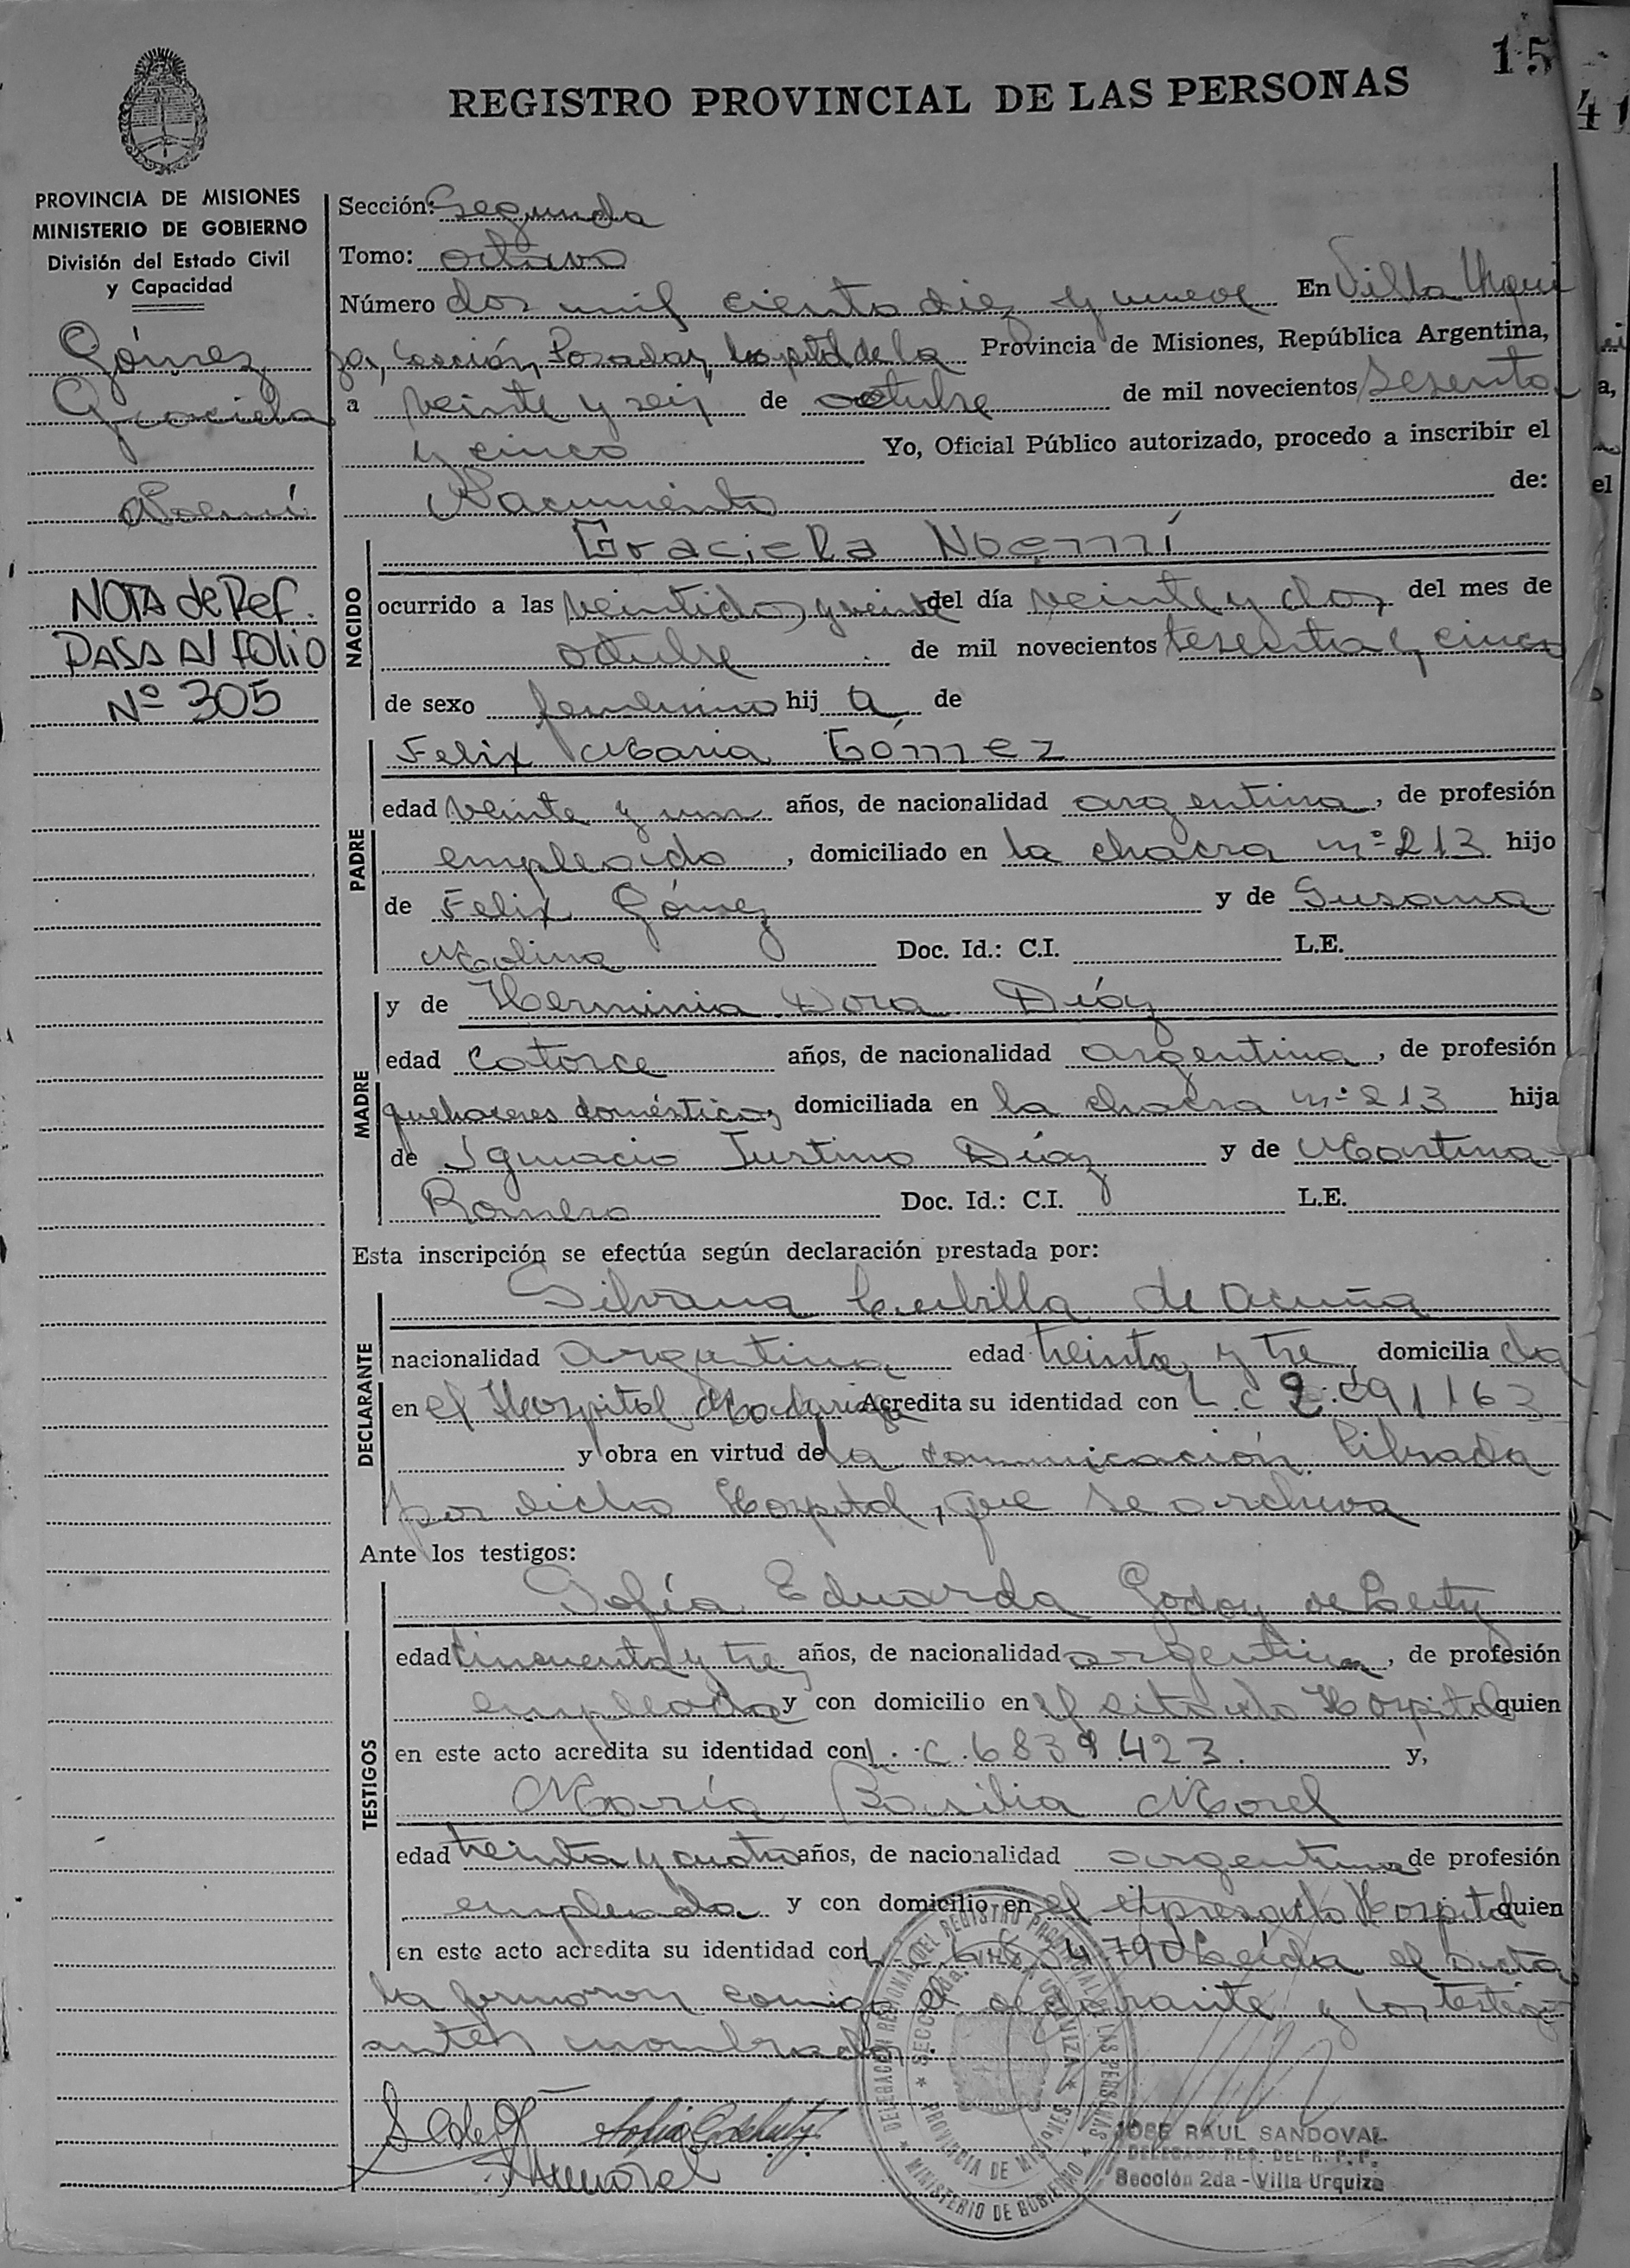 15
41
REGISTRO PROVINCIAL DE LAS PERSONAS
PROVINCIA DE MISIONES
MINISTERIO DE GOBIERNO
División del Estado Civil
y Capacidad
Gómez
Graciela
Noemí
NOTA de Ref.
PASA Al FOLiO
Nº 305
Sección: Segunda
Tomo: octavo
Número dos mil ciento diez y nueve En Villa Urqui
za, Sección, Posadas, capital de la Provincia de Misiones, República Argentina,
a veinte y seis de octubre de mil novecientos sesenta
y cinco Yo, Oficial Público autorizado, procedo a inscribir el
Nacimiento de:
Graciela Noemí
NACIDO
ocurrido a las veintidos y veinte del día veinte y dos, del mes de
octubre de mil novecientos sesenta y cinco
de sexo femenino hij a de
PADRE
Felix Maria Gómez
edad veinte y un años, de nacionalidad argentina, de profesión
empleado, domiciliado en la chacra nº 213 hijo
de Felix Gómez y de Susana
Molina Doc. Id.: C.I. L.E.
MADRE
y de Herminia Dora Díaz
edad catorce años, de nacionalidad argentina, de profesión
quehaceres domésticos, domiciliada en la chacra nº 213 hija
de Ignacio Justino Díaz y de Martina
Romero Doc. Id.: C.I. L.E.
Esta inscripción se efectúa según declaración prestada por:
DECLARANTE
Silvana Cubilla de Acuña
nacionalidad argentina edad treinta y tre, domicilia da
en el Hospital Madariaga Acredita su identidad con L.C 2.
y obra en virtud de la comunicación librada
por dicho Hospital, que se archiva
Ante los testigos:
TESTIGOS
Sofía Eduarda Godoy de
edad cincuenta y tre, años, de nacionalidad argentina, de profesión
empleada y con domicilio en el citado Hospital quien
en este acto acredita su identidad con L.C. 6839.423. y,
María Basilia Morel
edad treinta y cuatro años, de nacionalidad argentina de profesión
empleada y con domicilio en el expresado Hospital quien
en este acto acredita su identidad con L.C. Leída el acta
la firmaron conmigo el declarante y los testigos
antes nombrados.
DELEGACIÓN REGIONAL DEL REGISTRO PROVINCIAL DE LAS PERSONAS
SECCION 2da. VILLA URQUIZA
PROVINCIA DE MISIONES
MINISTERIO DE GOBIERNO
JOSE RAUL SANDOVAL
DELEGADO REG. DEL R. P. P.
Sección 2da - Villa Urquiza